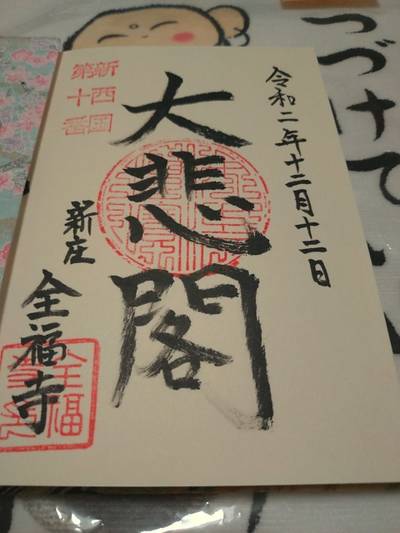 令和二年十二月十二日
大悲閣
新西国
第十番
新庄
全福寺
つづけて